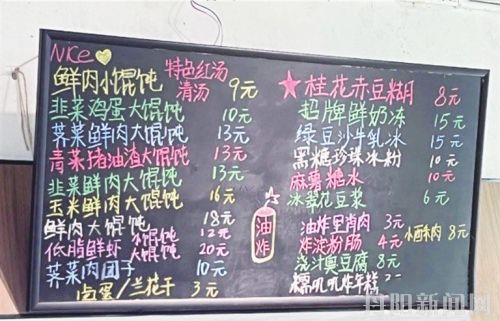 Nice
鲜肉小馄饨 特色红汤 清汤 9元
韭菜鸡蛋大馄饨 10元
荠菜鲜肉大馄饨 13元
青菜猪油渣大馄饨 13元
韭菜鲜肉大馄饨 13元
玉米鲜肉大馄饨 16元
鲜肉大馄饨 18元
低脂鲜虾 小馄饨 12元
大馄饨 20元
荠菜肉团子 10元
卤蛋/兰花干 3元
★桂花赤豆糊 8元
招牌鲜奶冻 15元
绿豆沙牛乳冰 15元
黑糖珍珠冰粉 10元
麻薯糖水 10元
冰翠花豆浆 6元
油炸
油炸里脊肉 3元
炸淀粉肠 4元
小酥肉 8元
浇汁臭豆腐 8元
糯叽叽炸年糕
丹阳新闻网